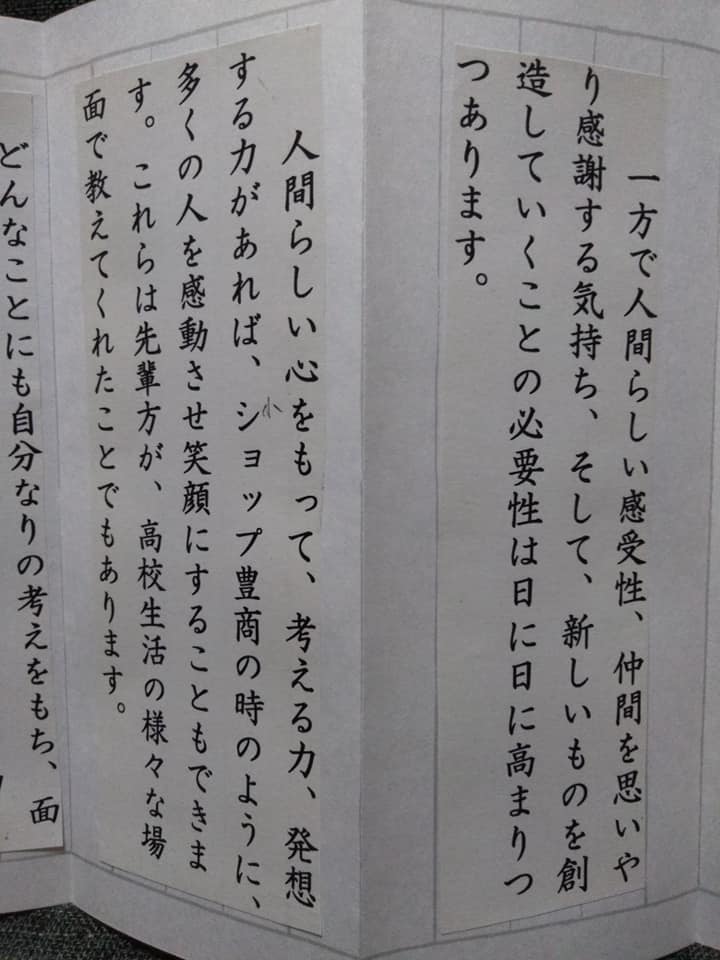 一方で人間らしい感受性、仲間を思いや
り感謝する気持ち、そして、新しいものを創
造していくことの必要性は日に日に高まりつ
つあります。
人間らしい心をもって、考える力、発想
する力があれば、ショップ豊商の時のように、
小
多くの人を感動させ笑顔にすることもできま
す。これらは先輩方が、高校生活の様々な場
面で教えてくれたことでもあります。
どんなことにも自分なりの考えをもち、面